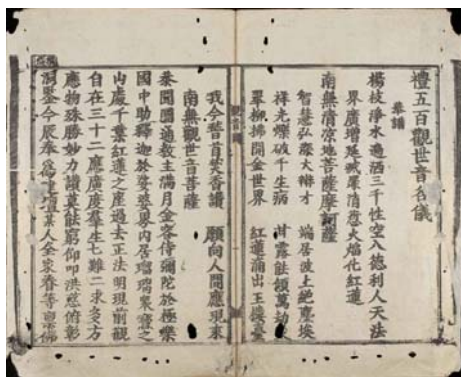 禮五百觀世音名儀
舉讚
楊枝淨水遍洒三千性空八德利人天法
界廣增延滅罪消愆火焰化紅蓮
南無清凉地菩薩摩訶薩
智慧弘深大辯才 端居波上絕塵埃
祥光爍破千生病 甘露能傾萬劫
翠柳拂開金世界 紅蓮涌出玉樓臺
我今稽首焚香讚 願向人間應現來
南無觀世音菩薩
恭聞圓通教主滿月金容侍彌陀於極樂
國中助釋迦於娑婆界內居瑠璃衆寶之
山處千葉紅蓮之座過去正法明現前觀
自在三十二應廣度羣生七難二求多方
應物殊勝妙力讚莫能窮仰叩洪慈俯彰
洞鑒今辰奉 某人全家眷等